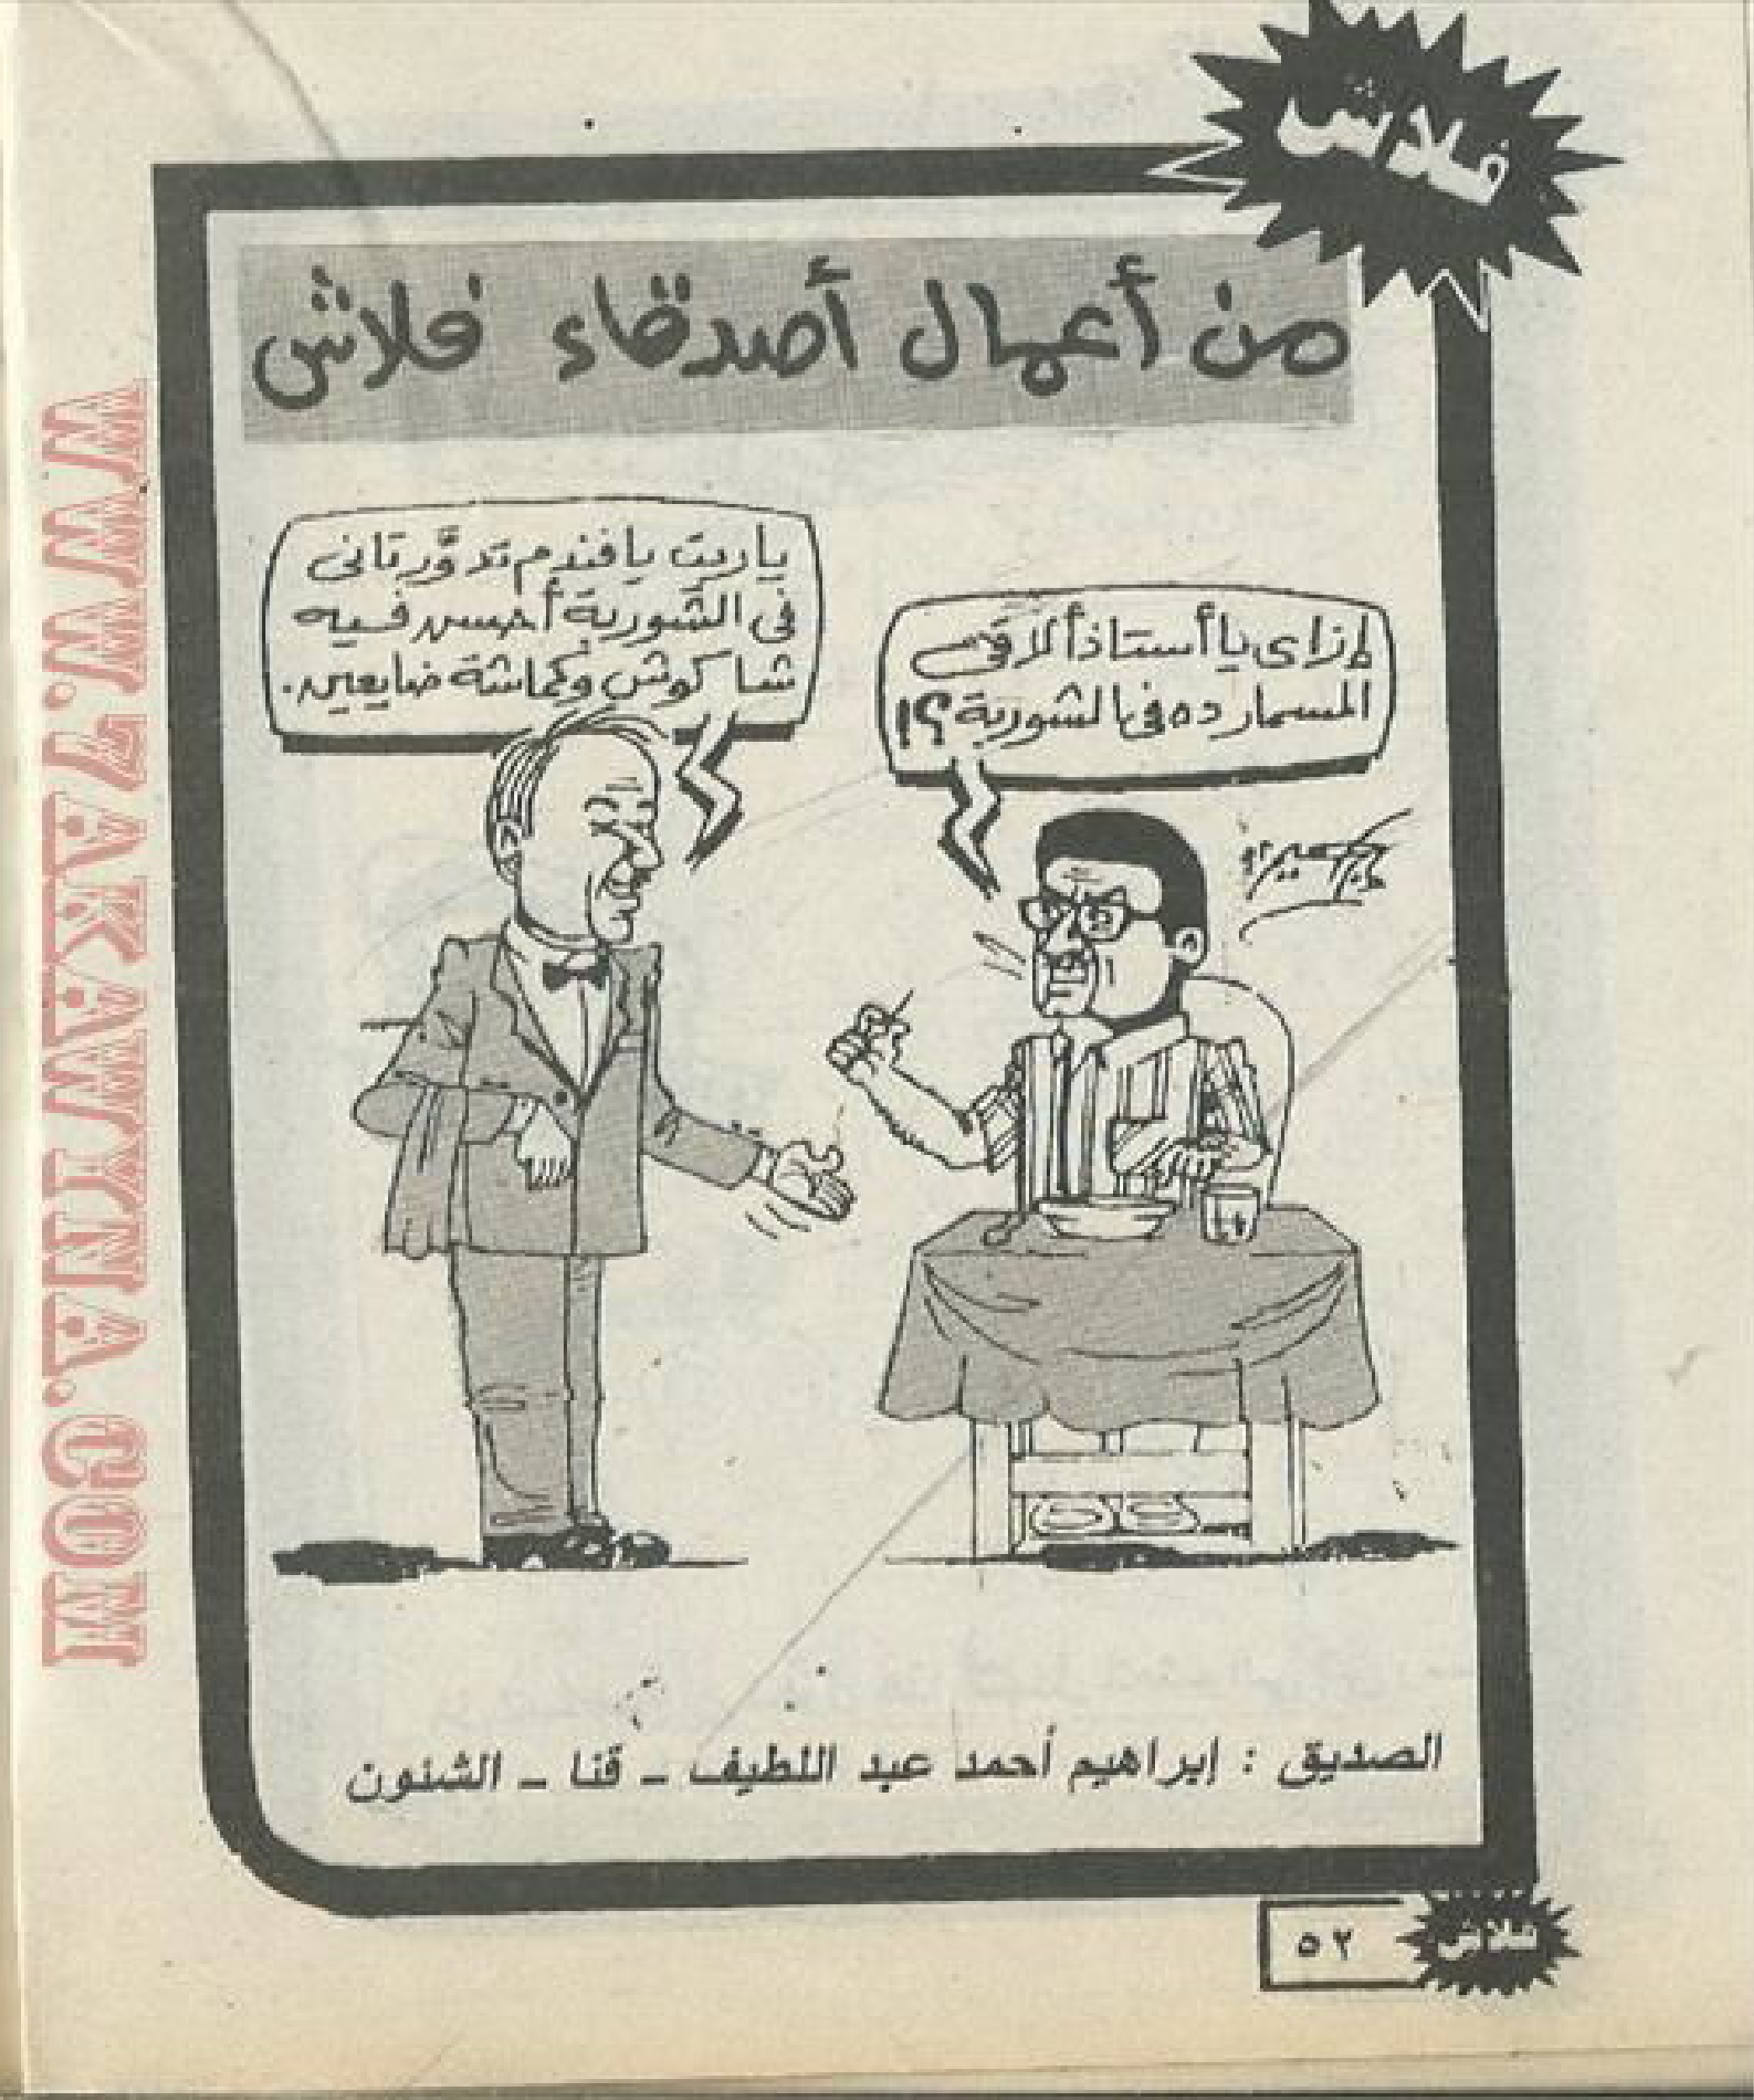 فلاش
من أعمال أصدقاء فلاش
إزاى يا أستاذ ألاقى
المسمار ده فى الشوربة؟!
ياريت يافندم تدوَّر تانى
فى الشوربة أحسن فيه
شاكوش وكماشة ضايعين.
الصديق : إبراهيم أحمد عبد اللطيف - قنا - الشئون
٥٢
فلاش
WWW.7AKAWITNA.COM